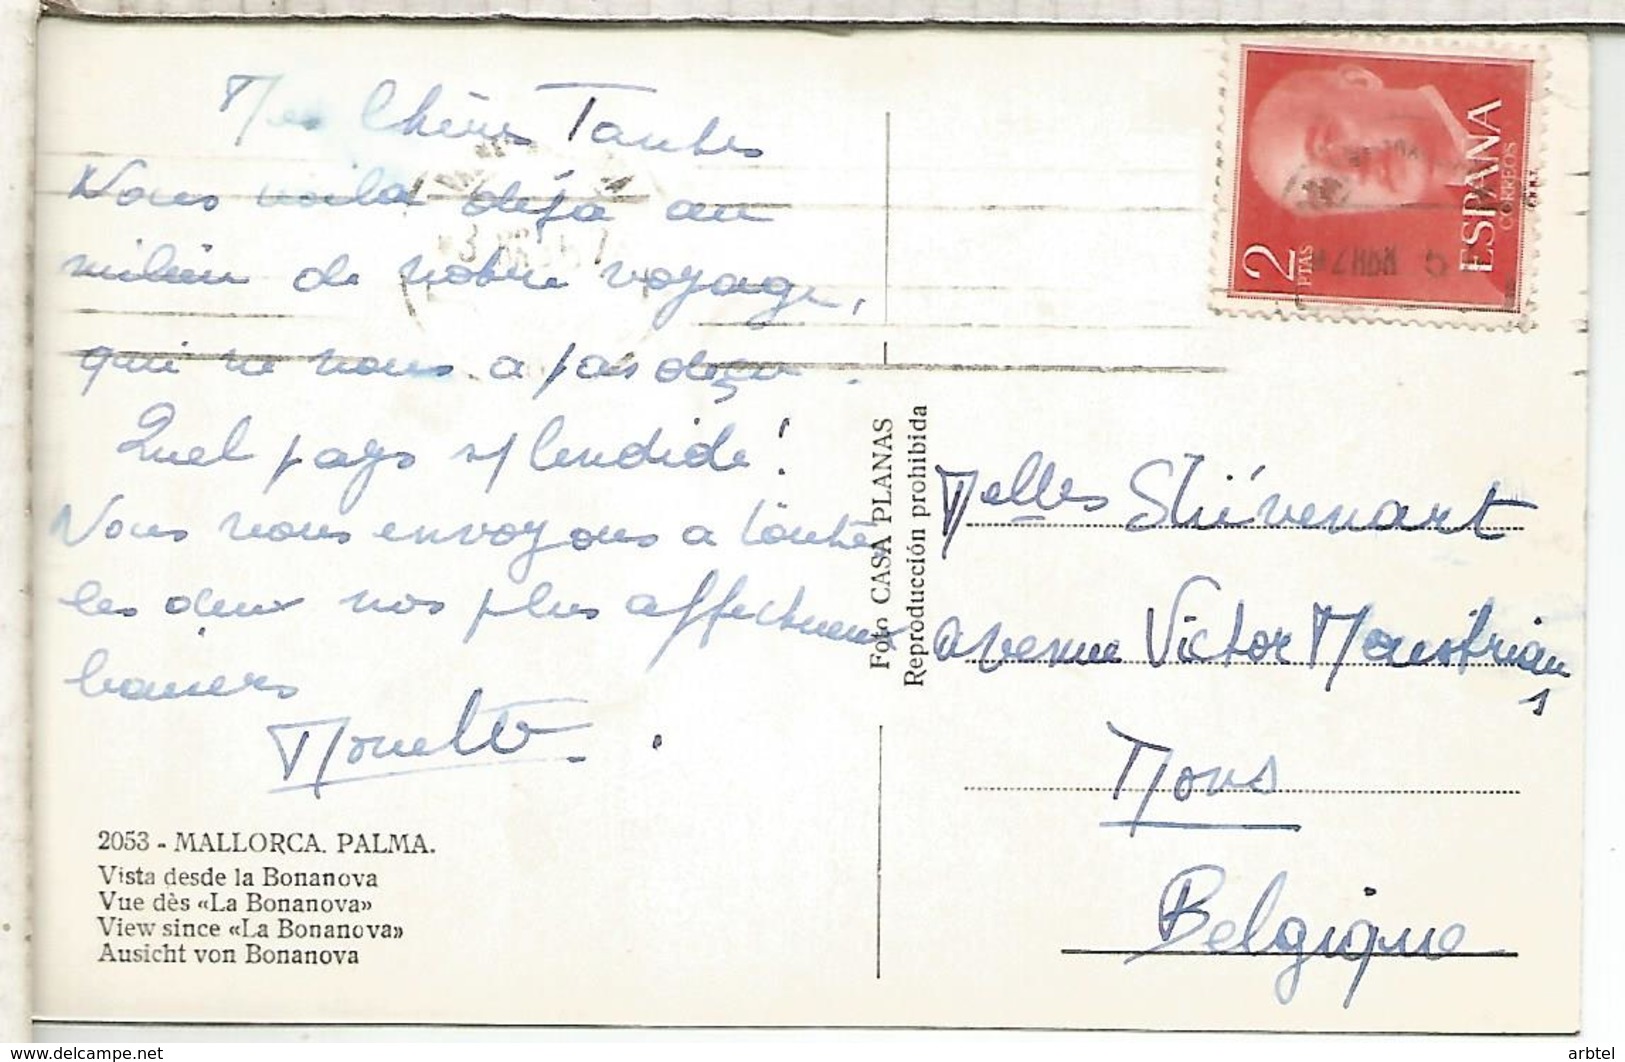 Mes Chères Tantes
Nous voilà déjà au
milieu de notre voyage,
qui ne nous a pas déçu.
Quel pays splendide !
Nous nous envoyons a toutes
les deux nos plus affectueux
baisers
2053 - MALLORCA. PALMA.
Vista desde la Bonanova
Vue dès «La Bonanova»
View since «La Bonanova»
Ausicht von Bonanova
Foto CASA PLANAS
Reproducción prohibida
2 PTAS
ESPAÑA
CORREOS
Melles Stiévenart
avenue Victor Maistriau,
1
Mons
Belgique
arbtel